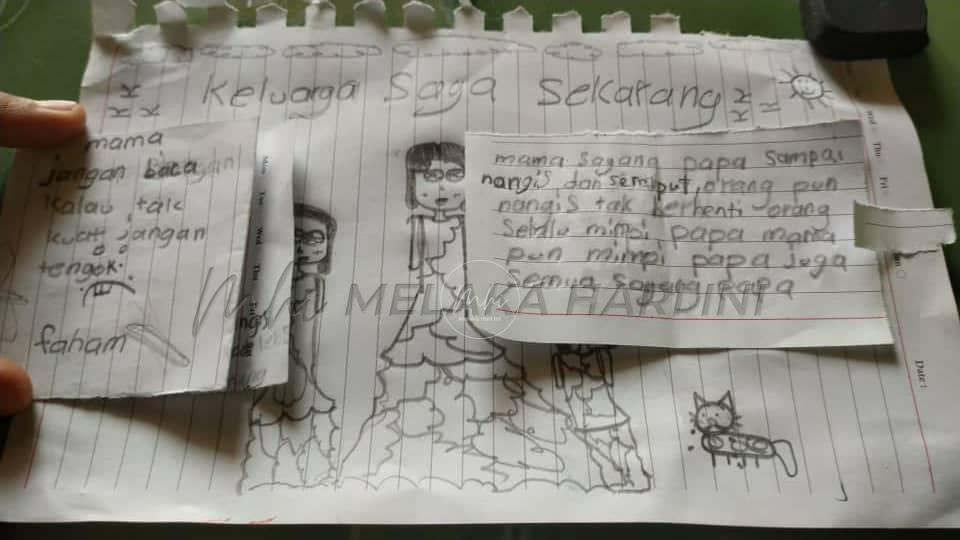 Keluarga Saga Sekarang
mama
jangan baca
kalau tak
kuat jangan
tengok
faham
mama sayang papa sampai
nangis dan semput, orang pun
nangis tak berhenti orang
selalu mimpi papa mama
pun mimpi papa juga
semua sayang papa
MELAKA HARDINI
Mon Tue Wed Thu Fri
Wed Thu Fri
Date: